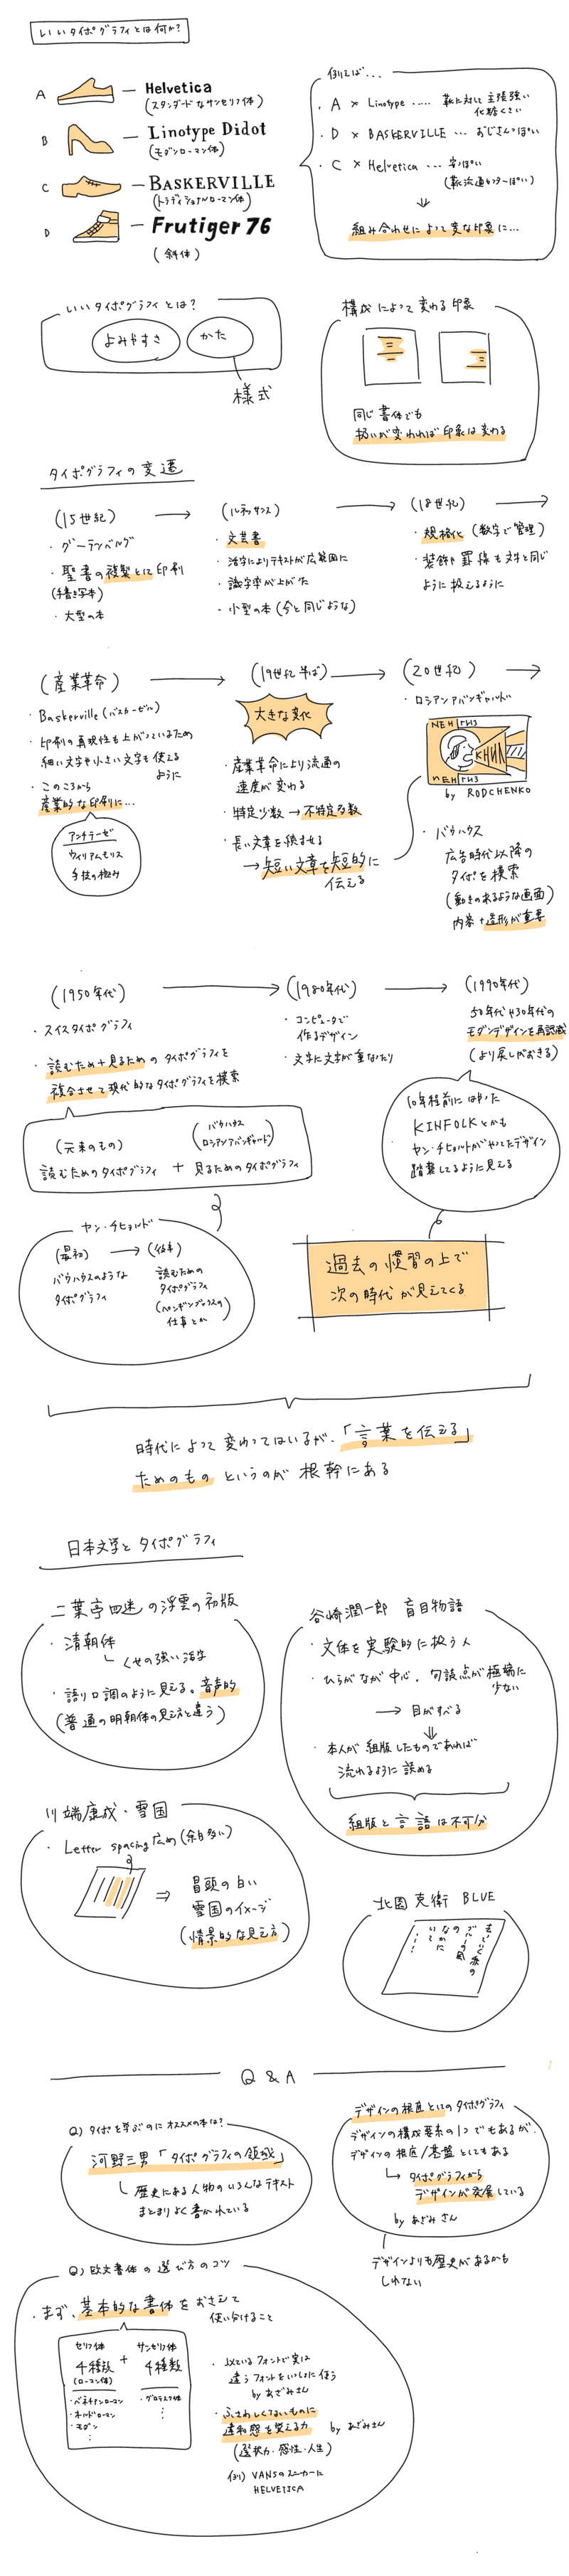 いいタイポグラフィとは何か?
A — Helvetica
(スタンダードなサンセリフ体)
B — Linotype Didot
(モダンローマン体)
C — BASKERVILLE
(トラディショナルローマン体)
D — Frutiger 76
(斜体)
例えば...
・A × Linotype .... 靴に対して主張強い
化粧くさい
・D × BASKERVILLE ... おじさんっぽい
・C × Helvetica ... 字っぽい
(靴流通センターっぽい)
⇓
組み合わせによって変な印象に...
いいタイポグラフィとは?
よみやすさ
かた
様式
構成によって変わる印象
同じ書体でも
扱いが変われば印象は変わる
タイポグラフィの変遷
(15世紀) →
・グーテンベルグ
・聖書の複製として印刷
(手書き写本)
・大型の本
(ルネッサンス) →
・文芸書
・活字によりテキストが広範囲に
・識字率が上がった
・小型の本(今と同じような)
(18世紀) →
・規格化(数字で管理)
・装飾や罫線も文字と同じ
ように扱えるように
(産業革命) →
・Baskerville(バスカービル)
・印刷の再現性も上がっているため
細い文字や小さい文字も使える
ように
・このころから
産業的な印刷に...
アンチテーゼ
ウィリアムモリス
手技の極み
(19世紀半ば) →
大きな変化
・産業革命により流通の
速度が変わる
・特定少数→不特定多数
・長い文章を読ませる
→短い文章を短的に
伝える
(20世紀) →
・ロシアンアバンギャルド
by RODCHENKO
・バウハウス
広告時代以降の
タイポを模索
(動きのあるような画面)
内容+造形が重要
(1950年代) →
・スイスタイポグラフィ
・読むため+見るためのタイポグラフィを
複合させて現代的なタイポグラフィを模索
(元来のもの)
読むためのタイポグラフィ + 見るためのタイポグラフィ
(バウハウス
ロシアンアバンギャルド)
ヤン・チヒョルト
(最初) → (後半)
バウハウスのような
タイポグラフィ
読むための
タイポグラフィ
(ペンギンブックスの
仕事とか)
(1980年代) →
・コンピュータで
作るデザイン
・文字に文字が重なたり
(1990年代)
50年代や30年代の
モダンデザインを再認識
(より戻しがおきる)
10年程前にはやった
KINFOLKとかも
ヤン・チヒョルトがやってたデザイン
踏襲してるように見える
過去の慣習の上で
次の時代が見えてくる
時代によって変わってはいるが、「言葉を伝える」
ためのものというのが根幹にある
日本文学とタイポグラフィ
二葉亭四迷の浮雲の初版
・清朝体
くせの強い活字
・語り口調のように見える。音声的
(普通の明朝体の見え方と違う)
谷崎潤一郎 盲目物語
・文体を実験的に扱う人
・ひらがなが中心、句読点が極端に
少ない
→ 目がすべる
⇓
・本人が組版したものであれば
流れるように読める
組版と言語は不可分
川端康成・雪国
・Letter spacing広め(余白多い)
⇒ 冒頭の白い
雪国のイメージ
(情景的な見え方)
北園克衛 BLUE
Q & A
Q) タイポを学ぶのにオススメの本は?
河野三男「タイポグラフィの領域」
歴史にある人物のいろんなテキスト
まとまりよく書かれている
デザインの根底としてのタイポグラフィ
デザインの構成要素の1つでもあるが、
デザインの根底/基盤としてもある
タイポグラフィから
デザインが発展している
by あざみさん
デザインよりも歴史があるかも
しれない
Q) 欧文書体の選び方のコツ
・まず、基本的な書体をおさえて
使い分けること
セリフ体
4種類
(ローマン体)
+
サンセリフ体
4種類
・ベネチアンローマン
・オールドローマン
・モダン
・グロテスク体
・似ているフォントで実は
違うフォントをいっしょに使う
by あざみさん
・ふさわしくないものに
違和感を覚える力 by あざみさん
(選択力・感性・人生)
例) VANSのスニーカーに
HELVETICA